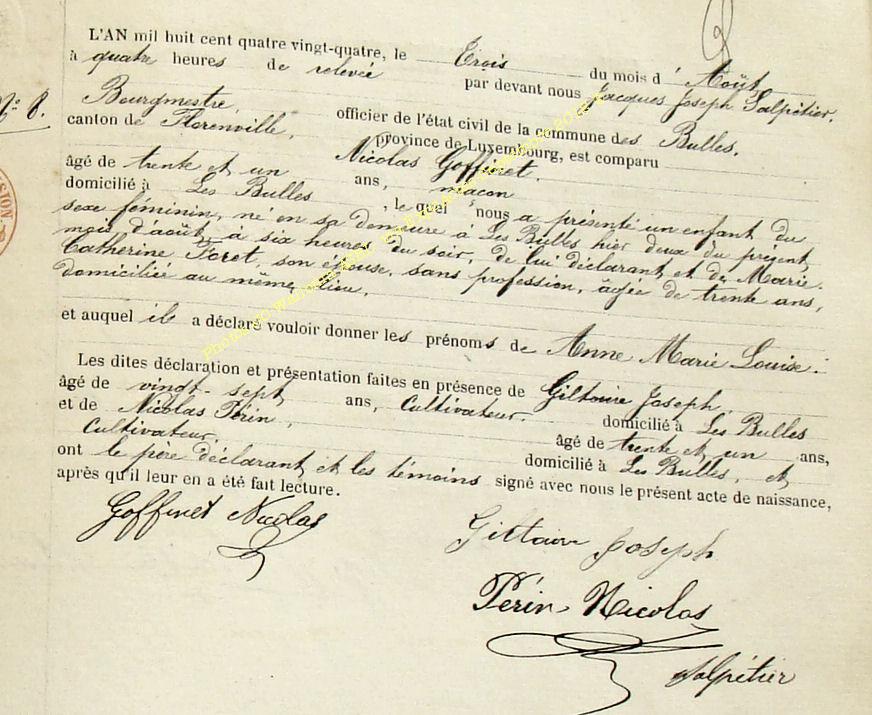 L'AN mil huit cent quatre vingt-quatre, le Trois du mois d'Août,
à quatre heures de relevée par devant nous Jacques Joseph Salpétier,
N° 8.
Bourgmestre, officier de l'état civil de la commune des Bulles,
canton de Florenville, province de Luxembourg, est comparu
Nicolas Goffinet,
âgé de trente et un ans, maçon
domicilié à Les Bulles, le quel nous a présenté un enfant du
sexe féminin, né en sa demeure à Les Bulles hier deux du présent
mois d'août à six heures du soir, de lui déclarant et de Marie
Catherine Toret, son épouse, sans profession, âgée de trente ans,
domiciliée au même lieu,
et auquel il a déclaré vouloir donner les prénoms de Anne Marie Louise.
Les dites déclaration et présentation faites en présence de Giltaire Joseph,
âgé de vingt-sept ans, Cultivateur, domicilié à Les Bulles
et de Nicolas Périn, âgé de trente et un ans,
Cultivateur, domicilié à Les Bulles, et
ont le père déclarant et les témoins signé avec nous le présent acte de naissance,
après qu'il leur en a été fait lecture.
Goffinet Nicolas
Giltaire Joseph
Périn Nicolas
Salpétier